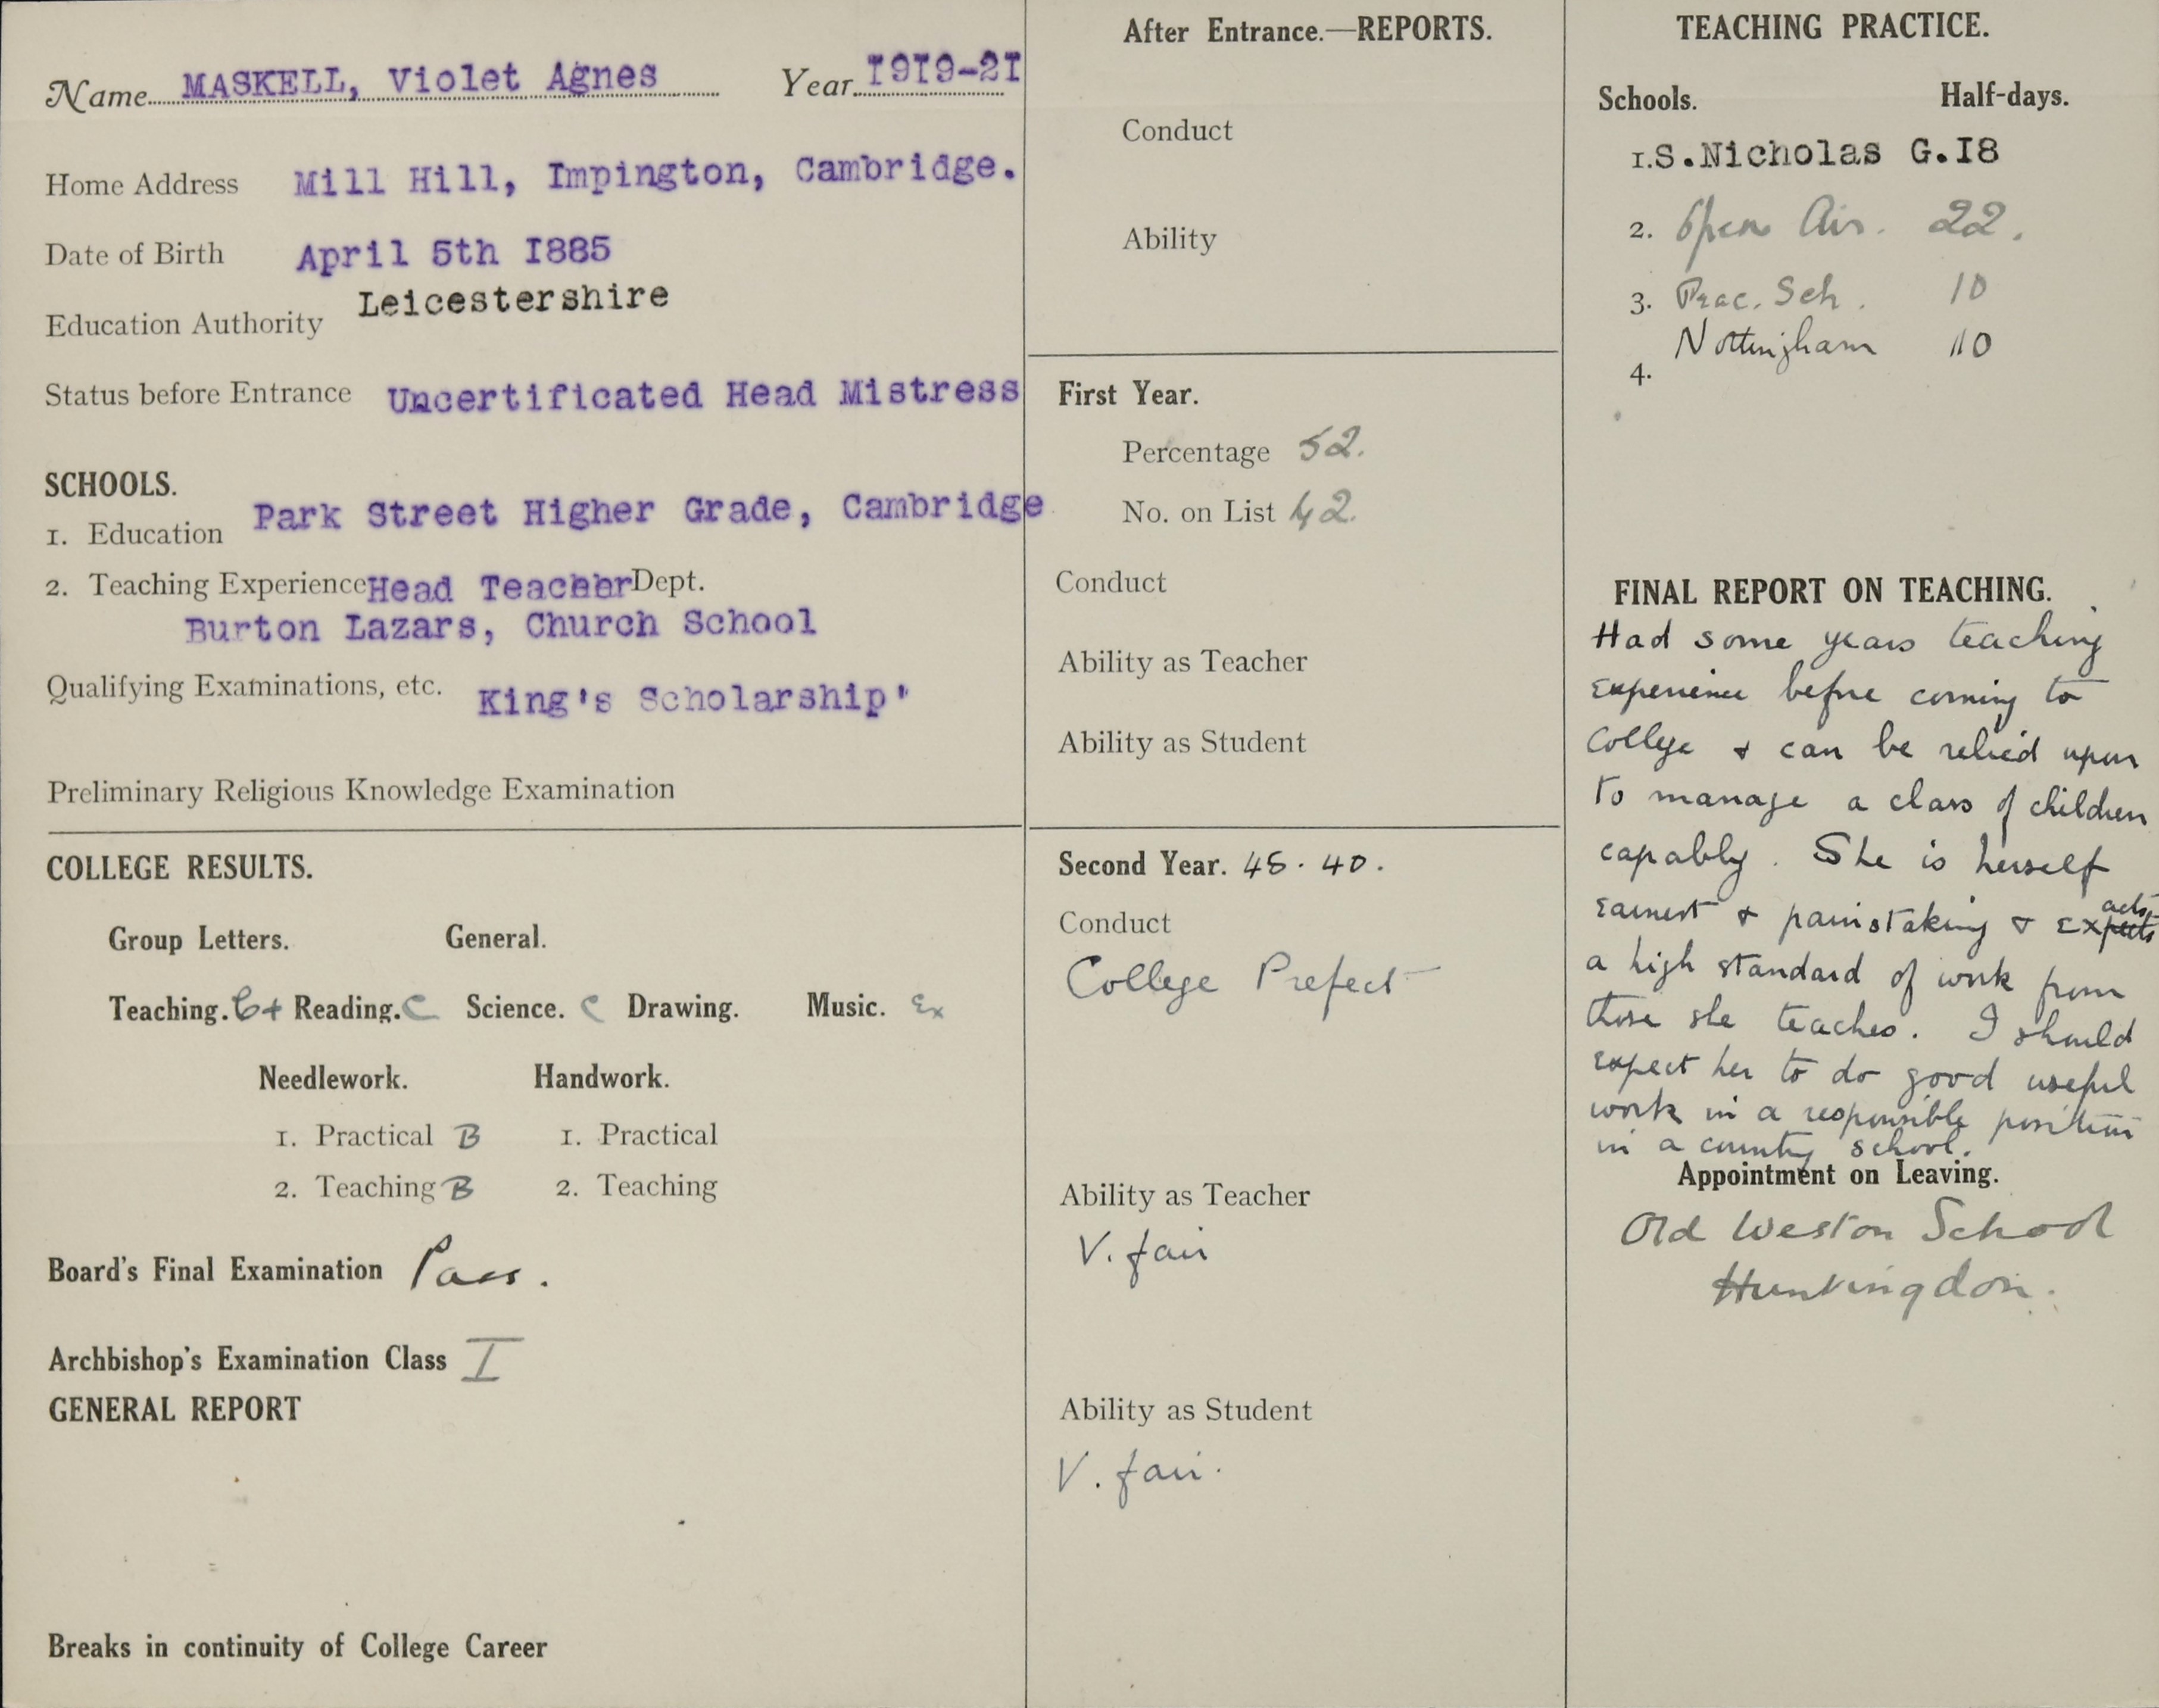 Name MASKELL, Violet Agnes Year I9I9-2I
Home Address Mill Hill, Impington, Cambridge.
Date of Birth April 5th I885
Education Authority Leicestershire
Status before Entrance Uncertificated Head Mistress
SCHOOLS.
1. Education Park Street Higher Grade, Cambridge
2. Teaching Experience Head Teacher Dept.
Burton Lazars, Church School
Qualifying Examinations, etc. King's Scholarship'
Preliminary Religious Knowledge Examination
COLLEGE RESULTS.
Group Letters. General.
Teaching. Reading. C Science. C Drawing. Music. Ex
Needlework. Handwork.
1. Practical B 1. Practical
2. Teaching B 2. Teaching
Board's Final Examination Pass.
Archbishop's Examination Class I
GENERAL REPORT
Breaks in continuity of College Career
After Entrance.—REPORTS.
Conduct
Ability
First Year.
Percentage 52.
No. on List 42.
Conduct
Ability as Teacher
Ability as Student
Second Year. 45. 40.
Conduct
College Prefect
Ability as Teacher
V. fair
Ability as Student
V. fair.
TEACHING PRACTICE.
Schools. Half-days.
1. S.Nicholas G. I8
2. Open Air. 22.
3. Prac. Sch. 10
Nottingham 110
4.
FINAL REPORT ON TEACHING.
Had some years teaching
experience before coming to
College & can be relied upon
to manage a class of children
capably. She is herself
earnest & painstaking & exacts
a high standard of work from
those she teaches. I should
expect her to do good useful
work in a responsible position
in a country school.
Appointment on Leaving.
Old Weston School
Huntingdon.